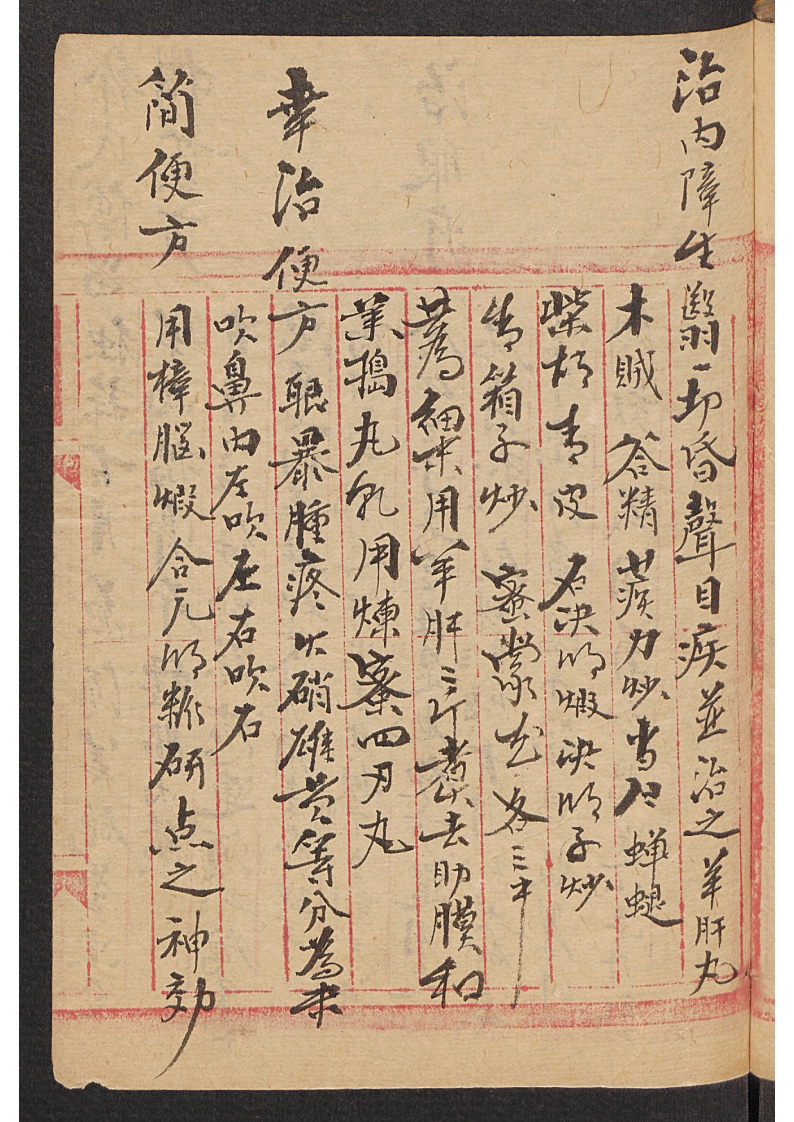 治內障生翳一切昏聲目疾並治之羊肝丸
木賊 谷精 蒺力炒 當归 蟬蛻
柴胡 青皮 石决明煆 决明子炒
青箱子炒 蜜蒙花 各三
共為細末用羊肝三斤煮去肋膜和
藥搗丸 用煉蜜四 丸
幸治便方 眼暴腫疼火硝雄黃等分為末
吹鼻內左吹左右吹右
簡便方 用樟腦煆合元明粉研点之神効